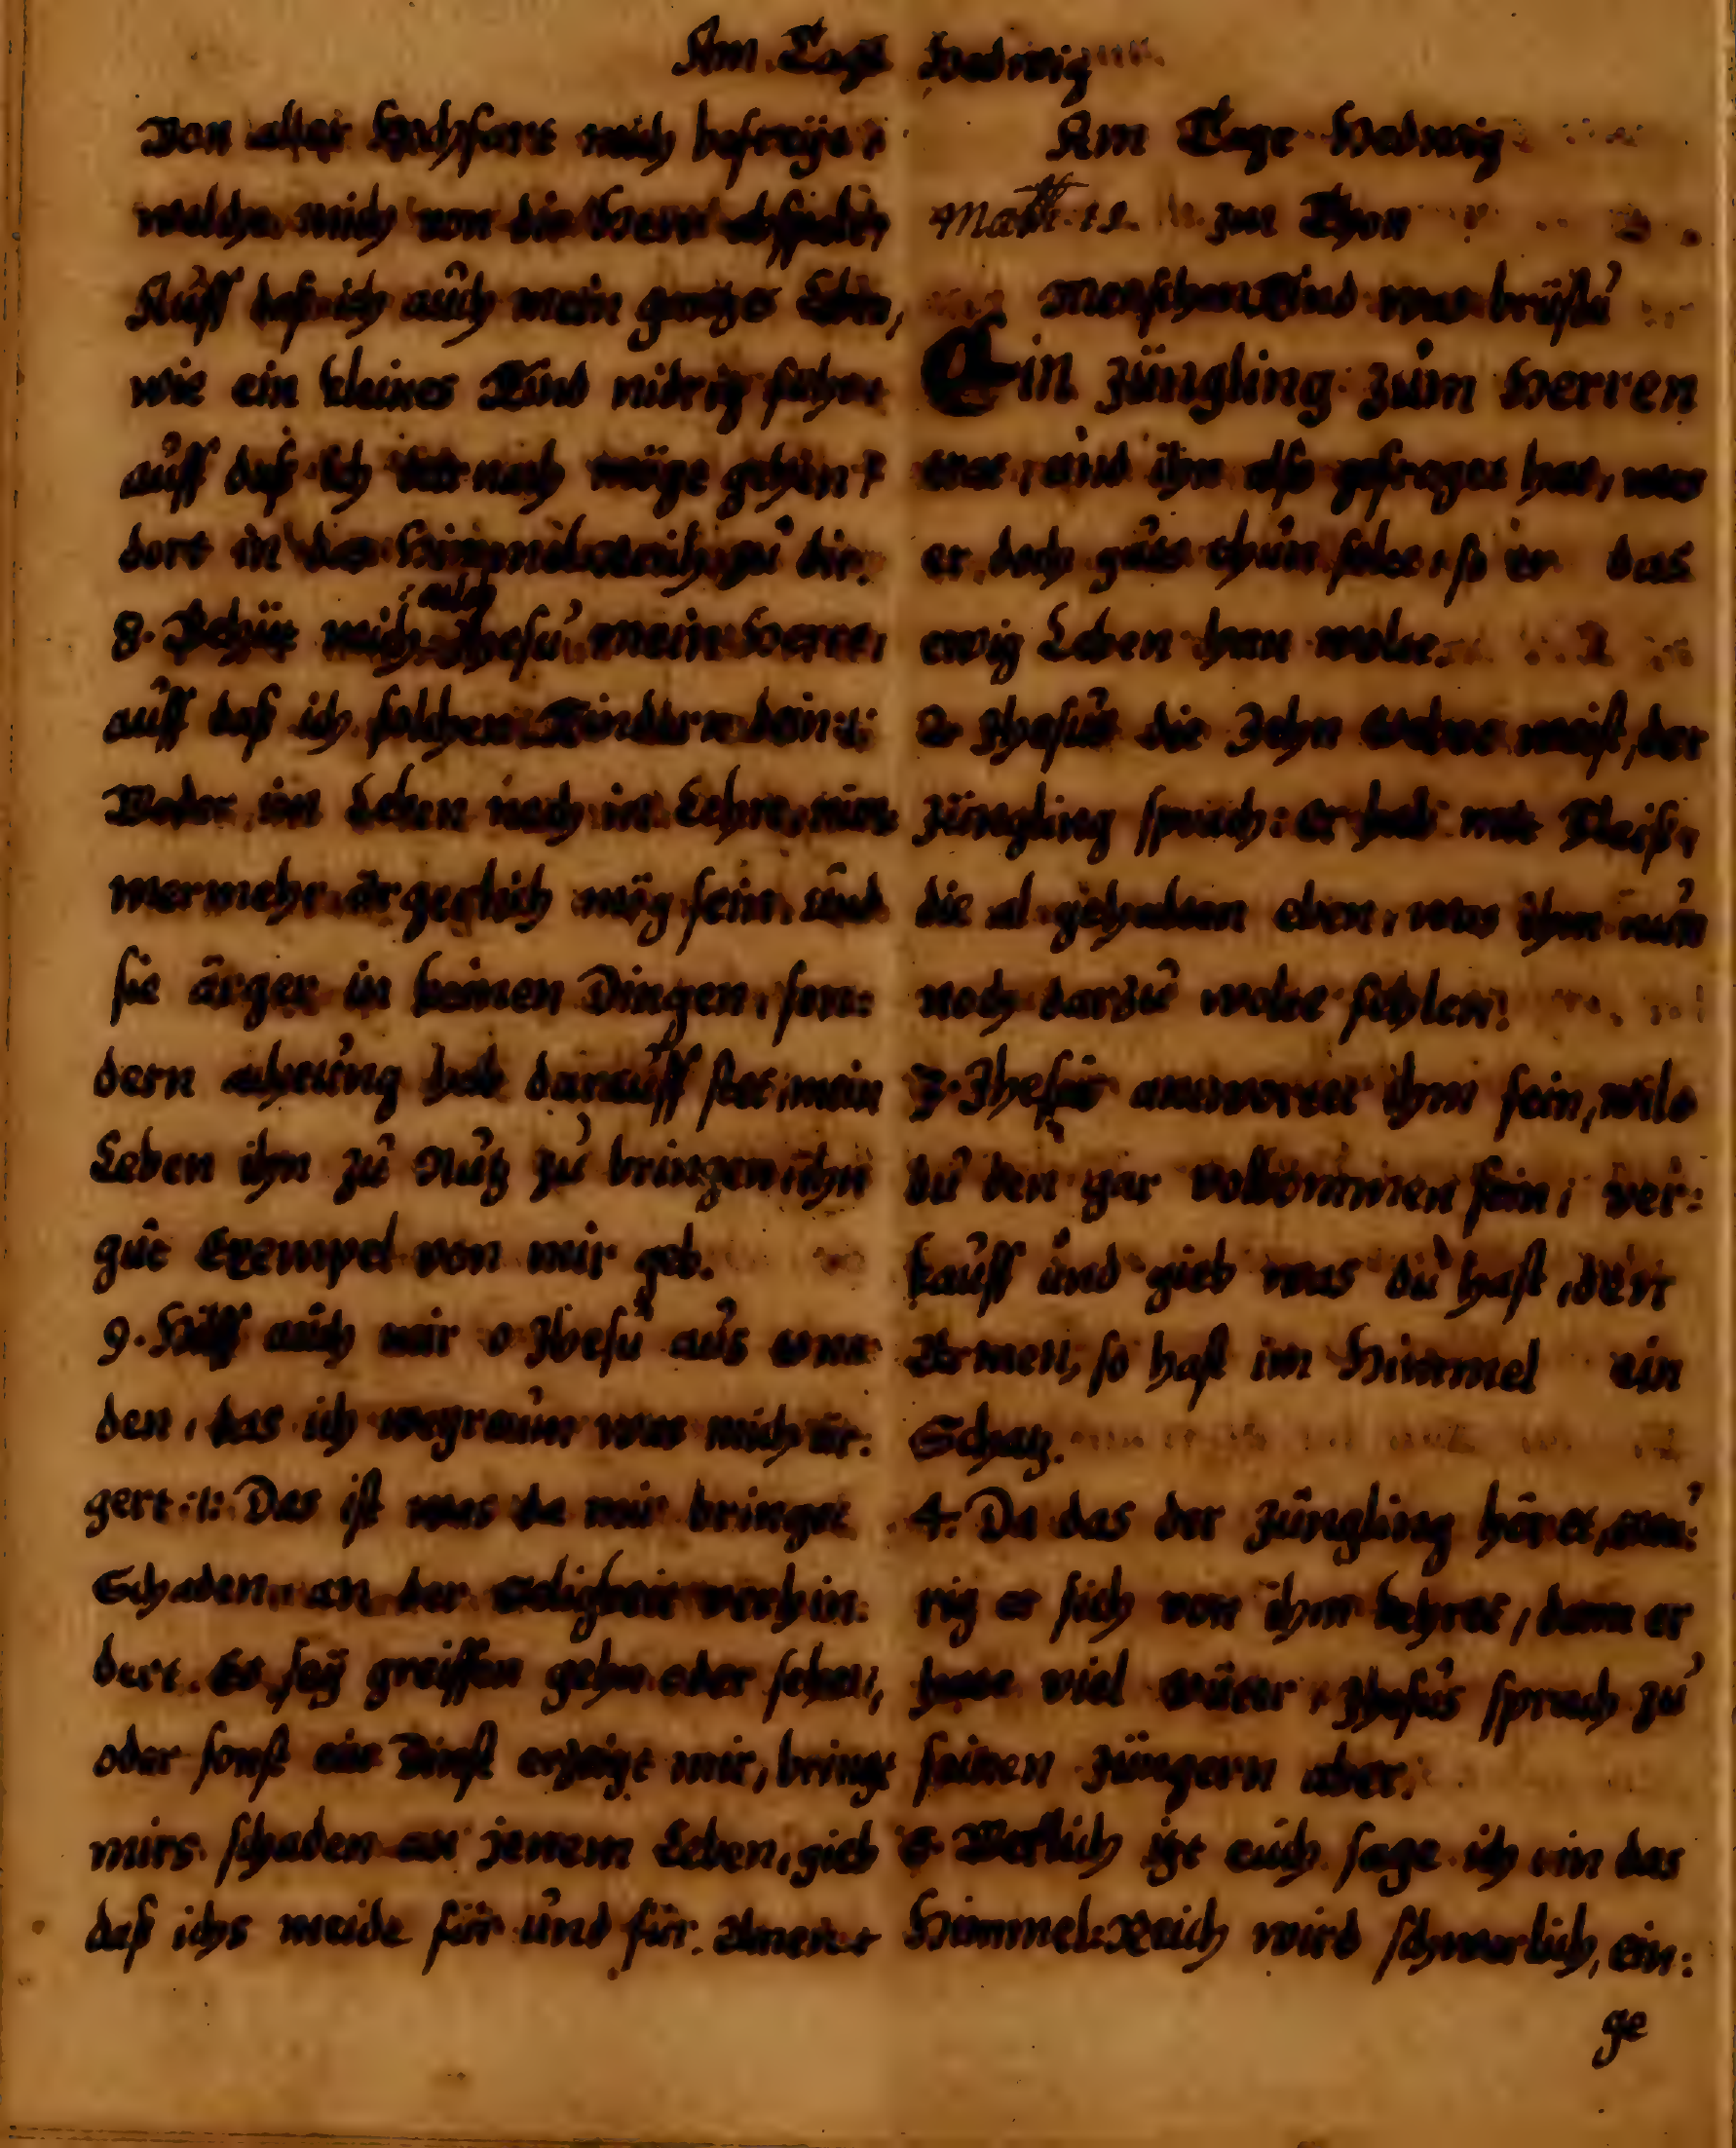 Am Tage Hedwig
Von aller Hochfart mich befreÿe,
welche mich von dir Herr abscheidt,
Auff daß ich auch mein gantzes Leben,
wie ein kleines Kind nidrig führe
auff daß ich hernach möge gehen
dort in das Himmelreich zu dir.
mich
8. Behüt Jhesu, mein Herre,
auff daß ich solchen Kindern dein :|:
Weder im Leben noch in Lehre, nim=
mermehr ärgerlich mög sein, und
sie ärger in keinen Dingen, son=
dern achtung hab darauff stet, mein
Leben ihn zu Nutz zu bringen, ihn
gut Exempel von mir geb.
9. Hilff auch mir o Jhesu aus
den, das ich wegraum was mich är=
gert :|: Das ist was da mir bringet
Schaden, an der Seligkeit verhin=
dert. Es seÿ greiffen gehn oder sehen,
oder sonst ein Dinst erzeigt mir, bringt
mirs schaden an jenem Leben, gieb
daß ichs meide für und für. Amen
Am Tage Hedwig
Matth. 19. im Thon
Menschen Kind was brüstu
Ein Jüngling zum Herren
trat, und ihn also gefraget hat, was
er doch guts thun solte, so er das
ewig Leben han wolte.
2. Jhesus die Zehn Gebot weist, der
Jüngling sprach: er hab mit Fleiß,
die al gehalten eben, was ihm nun
noch darzu wolte fehlen.
3. Jhesus antwortet ihm fein, wilt
du den gar volkommen sein, ver=
kauff und gieb was du hast, den
Armen, so hast im Himmel ein
Schatz.
4. Da das der Jüngling höret, trau=
rig er sich von ihm kehret, dann er
hatte viel Güter, Jhesus sprach zu
seinen Jüngern aber.
5. Werlich itzt euch sage ich, in das
Himmel=Reich wird schwerlich, ein=
ge